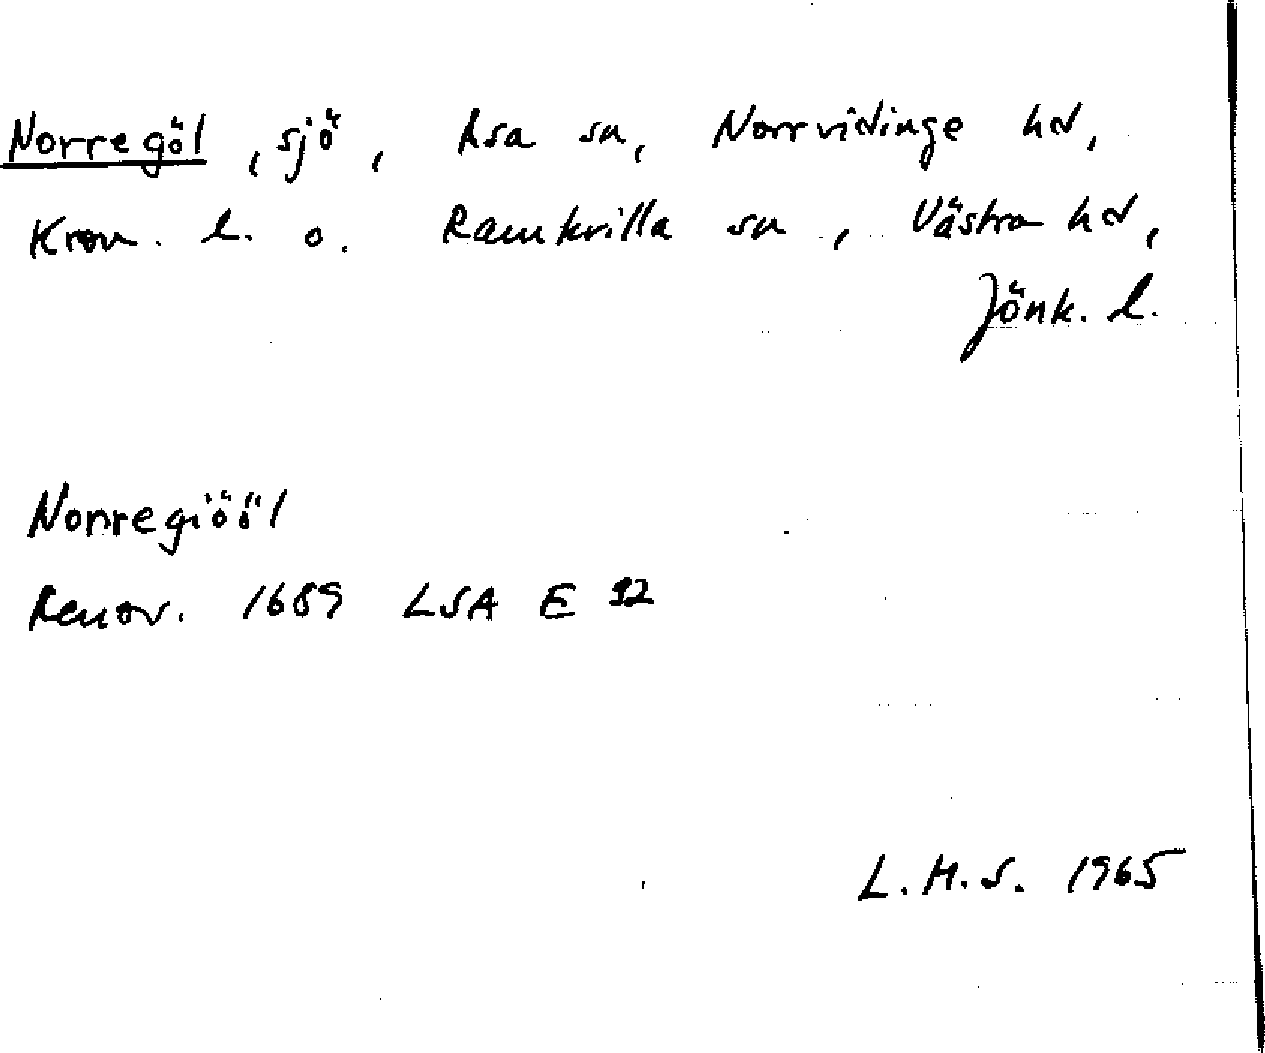 Norregöl, sjö, Asa sn, Norrvidinge hd,
Kron. l. o. Ramkvilla sn, Västra hd,
Jönk. l.
Norregiööl
Renov. 1689 LSA E 12
L.H.S. 1965